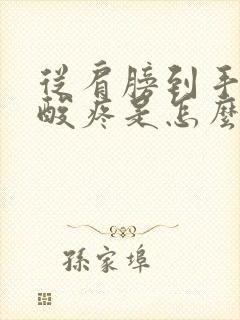 從肩膀到手
酸疼是怎麼
孫家埠